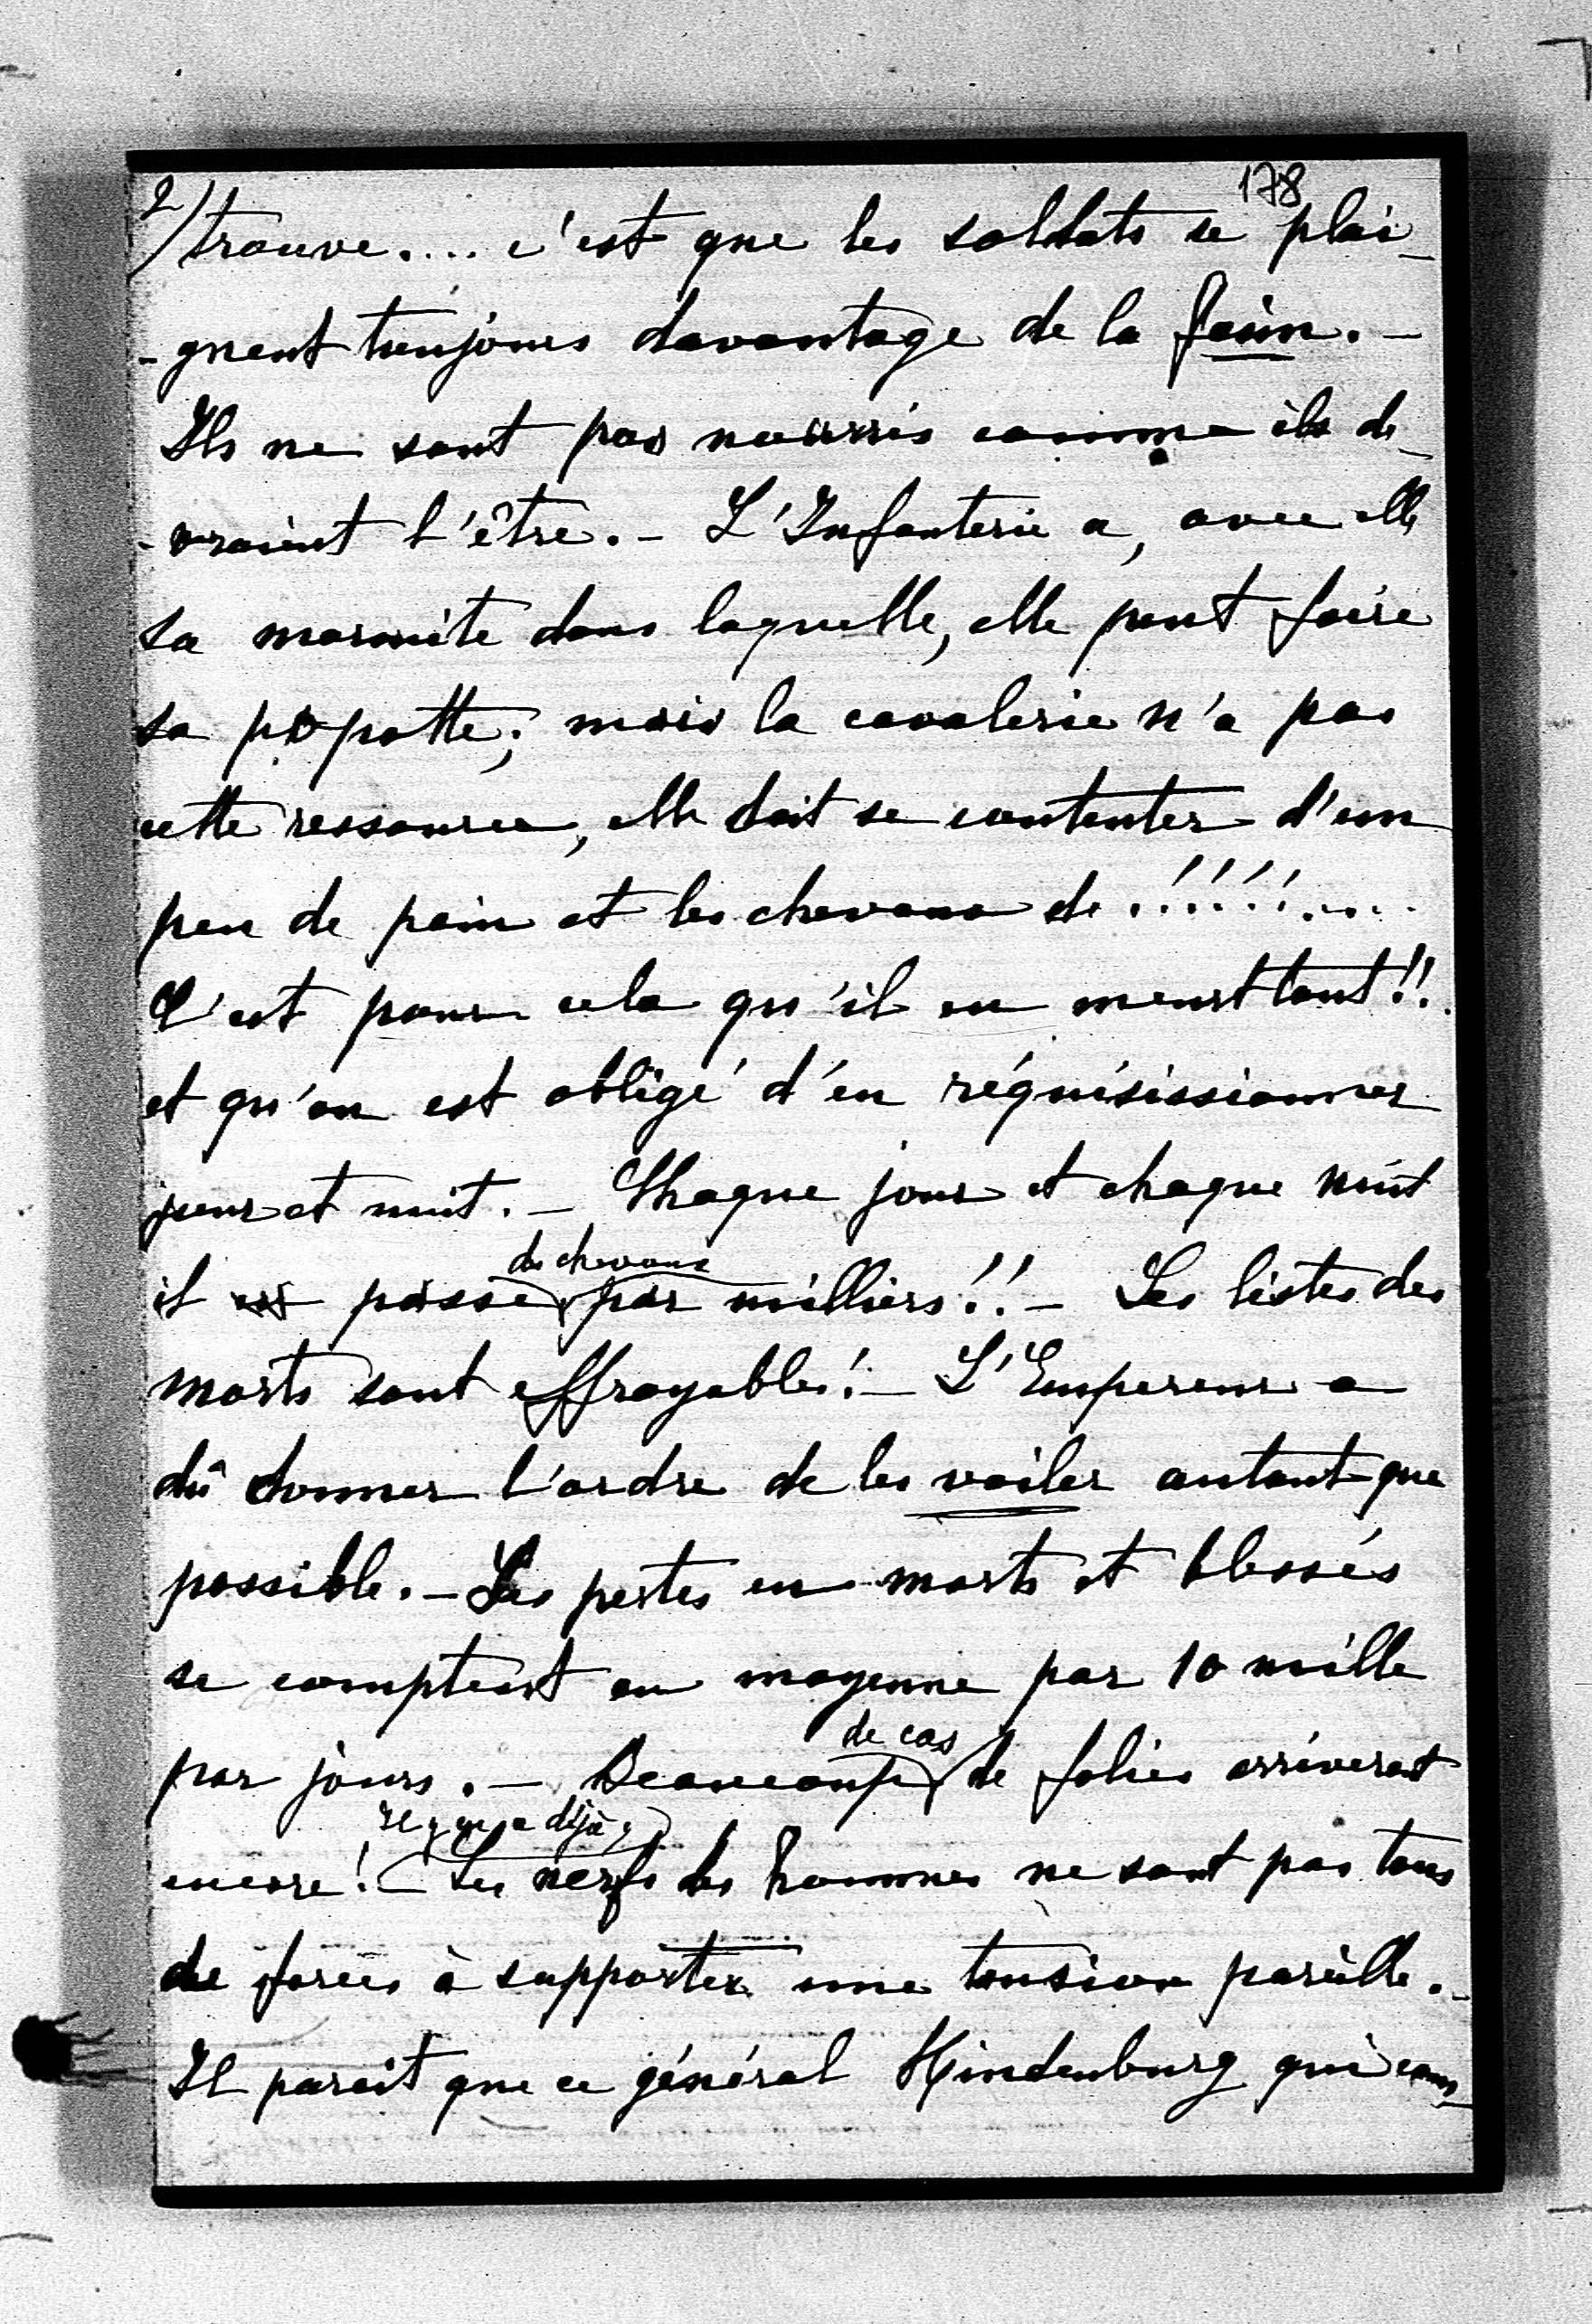 178
2/ trouve.... c'est que les soldats se plai-
-gnent toujours davantage de la faim. -
Ils ne sont pas nourris comme ils de-
-vraient l'être. - L'Infanterie a, avec elle
sa marmite dans laquelle, elle peut faire
sa popotte; mais la cavalerie n'a pas
cette ressource, elle doit se contenter d'un
peu de pain et les chevaux de !!!!!....
C'est pour cela qu'il en meurt tant!!
et qu'on est obligé d'en réquisissionner
jour et nuit. - Chaque jour et chaque nuit
des chevaux
il passe par milliers!! - Les listes des
morts sont effroyables! - L'Empereur a
dû donner l'ordre de les voiler autant que
possible. - Les pertes en morts et blessés
se comptent en moyenne par 10 mille
de cas
par jours. - Beaucoup de folies arriveront
déjà
encore! - Les nerfs des hommes ne sont pas tous
de forces à supporter une tension pareille. -
Il parait que ce général Hindenburg qui com-